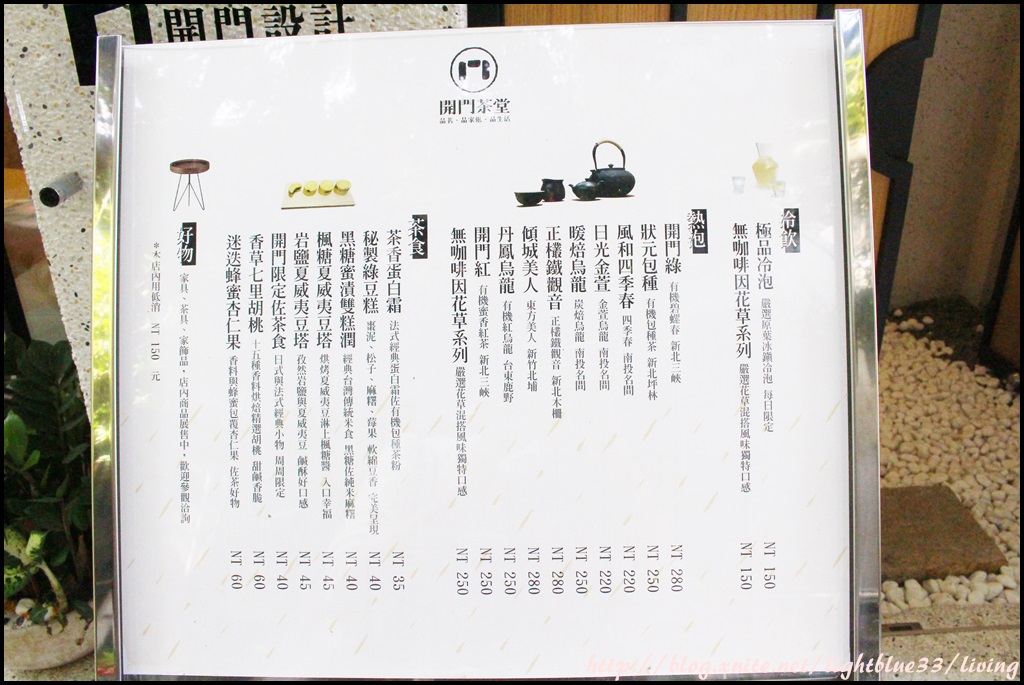 開門設計
開門茶堂
品茗．品家飾．品生活
冷飲
極品冷泡 嚴選原葉冰鎮冷泡 每日限定 NT 150
無咖啡因花草系列 嚴選花草混搭風味獨特口感 NT 150
熱泡
開門綠 有機碧螺春 新北三峽 NT 280
狀元包種 有機包種茶 新北坪林 NT 250
風和四季春 四季春 南投名間 NT 220
日光金萱 金萱烏龍 南投名間 NT 220
暖焙烏龍 炭焙烏龍 南投名間 NT 250
正欉鐵觀音 正欉鐵觀音 新北木柵 NT 280
傾城美人 東方美人 新竹北埔 NT 280
丹鳳烏龍 有機紅烏龍 台東鹿野 NT 250
開門紅 有機蜜香紅茶 新北三峽 NT 250
無咖啡因花草系列 嚴選花草混搭風味獨特口感 NT 250
茶食
茶香蛋白霜 法式經典蛋白霜佐有機包種茶粉 NT 35
秘製綠豆糕 棗泥、松子、麻糬、莓果 軟綿豆香 完美呈現 NT 40
黑糖蜜漬雙糕潤 經典台灣傳統米食 黑糖佐純米麻糬 NT 40
楓糖夏威夷豆塔 烘烤夏威夷豆淋上楓糖醬 入口幸福 NT 45
岩鹽夏威夷豆塔 孜然岩鹽與夏威夷豆 鹹酥好口感 NT 45
開門限定佐茶食 日式與法式經典小物 周周限定 NT 40
香草七里胡桃 十五種香料烘焙精選胡桃 甜鹹香脆 NT 60
迷迭蜂蜜杏仁果 香料與蜂蜜包覆杏仁果 佐茶好物 NT 60
好物
家具、茶具、家飾品，店內商品展售中，歡迎參觀洽詢
＊本店內用低消 NT 150 元
http://blog.xuite.net/lightblue33/living